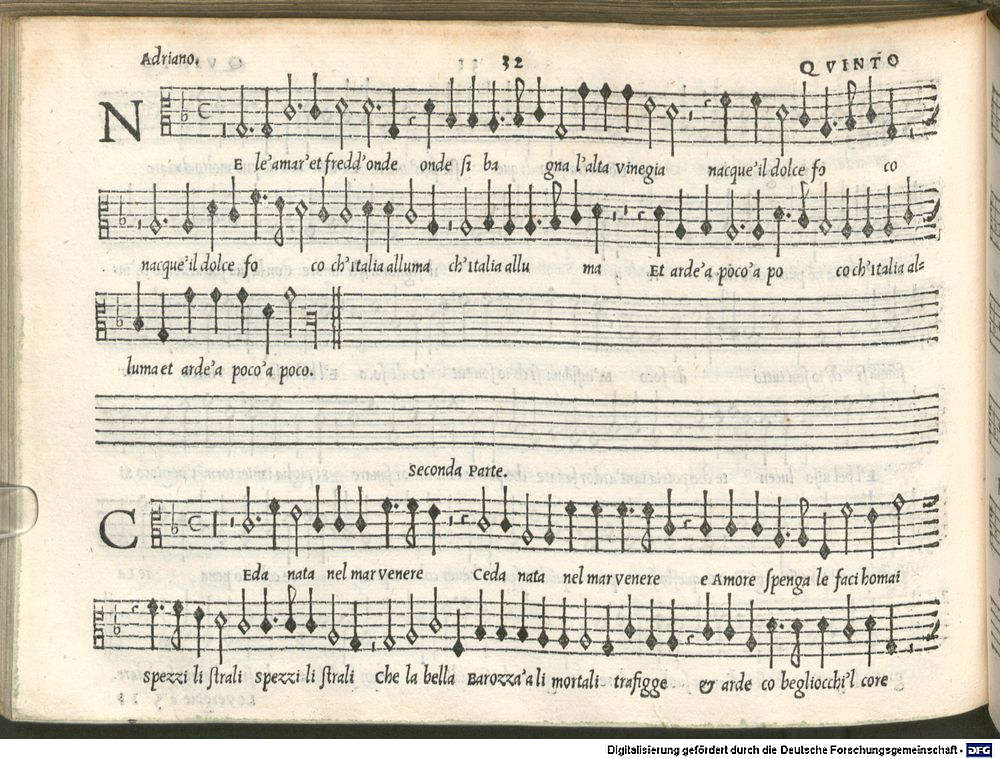 Adriano. 32 QVINTO
NE le'amar'et fredd'onde onde si ba gna l'alta Vinegia nacque'il dolce fo co
nacque'il dolce fo co ch'Italia alluma ch'Italia allu ma Et arde'a poco'a po co ch'Italia al=
luma et arde'a poco'a poco.
Seconda Parte.
CEda nata nel mar venere Ceda nata nel mar venere e Amore spenga le faci homai
spezzi li strali spezzi li strali Che la bella Barozza'a li mortali trafigge & arde co begliocchi'l core
Digitalisierung gefördert durch die Deutsche Forschungsgemeinschaft - DFG